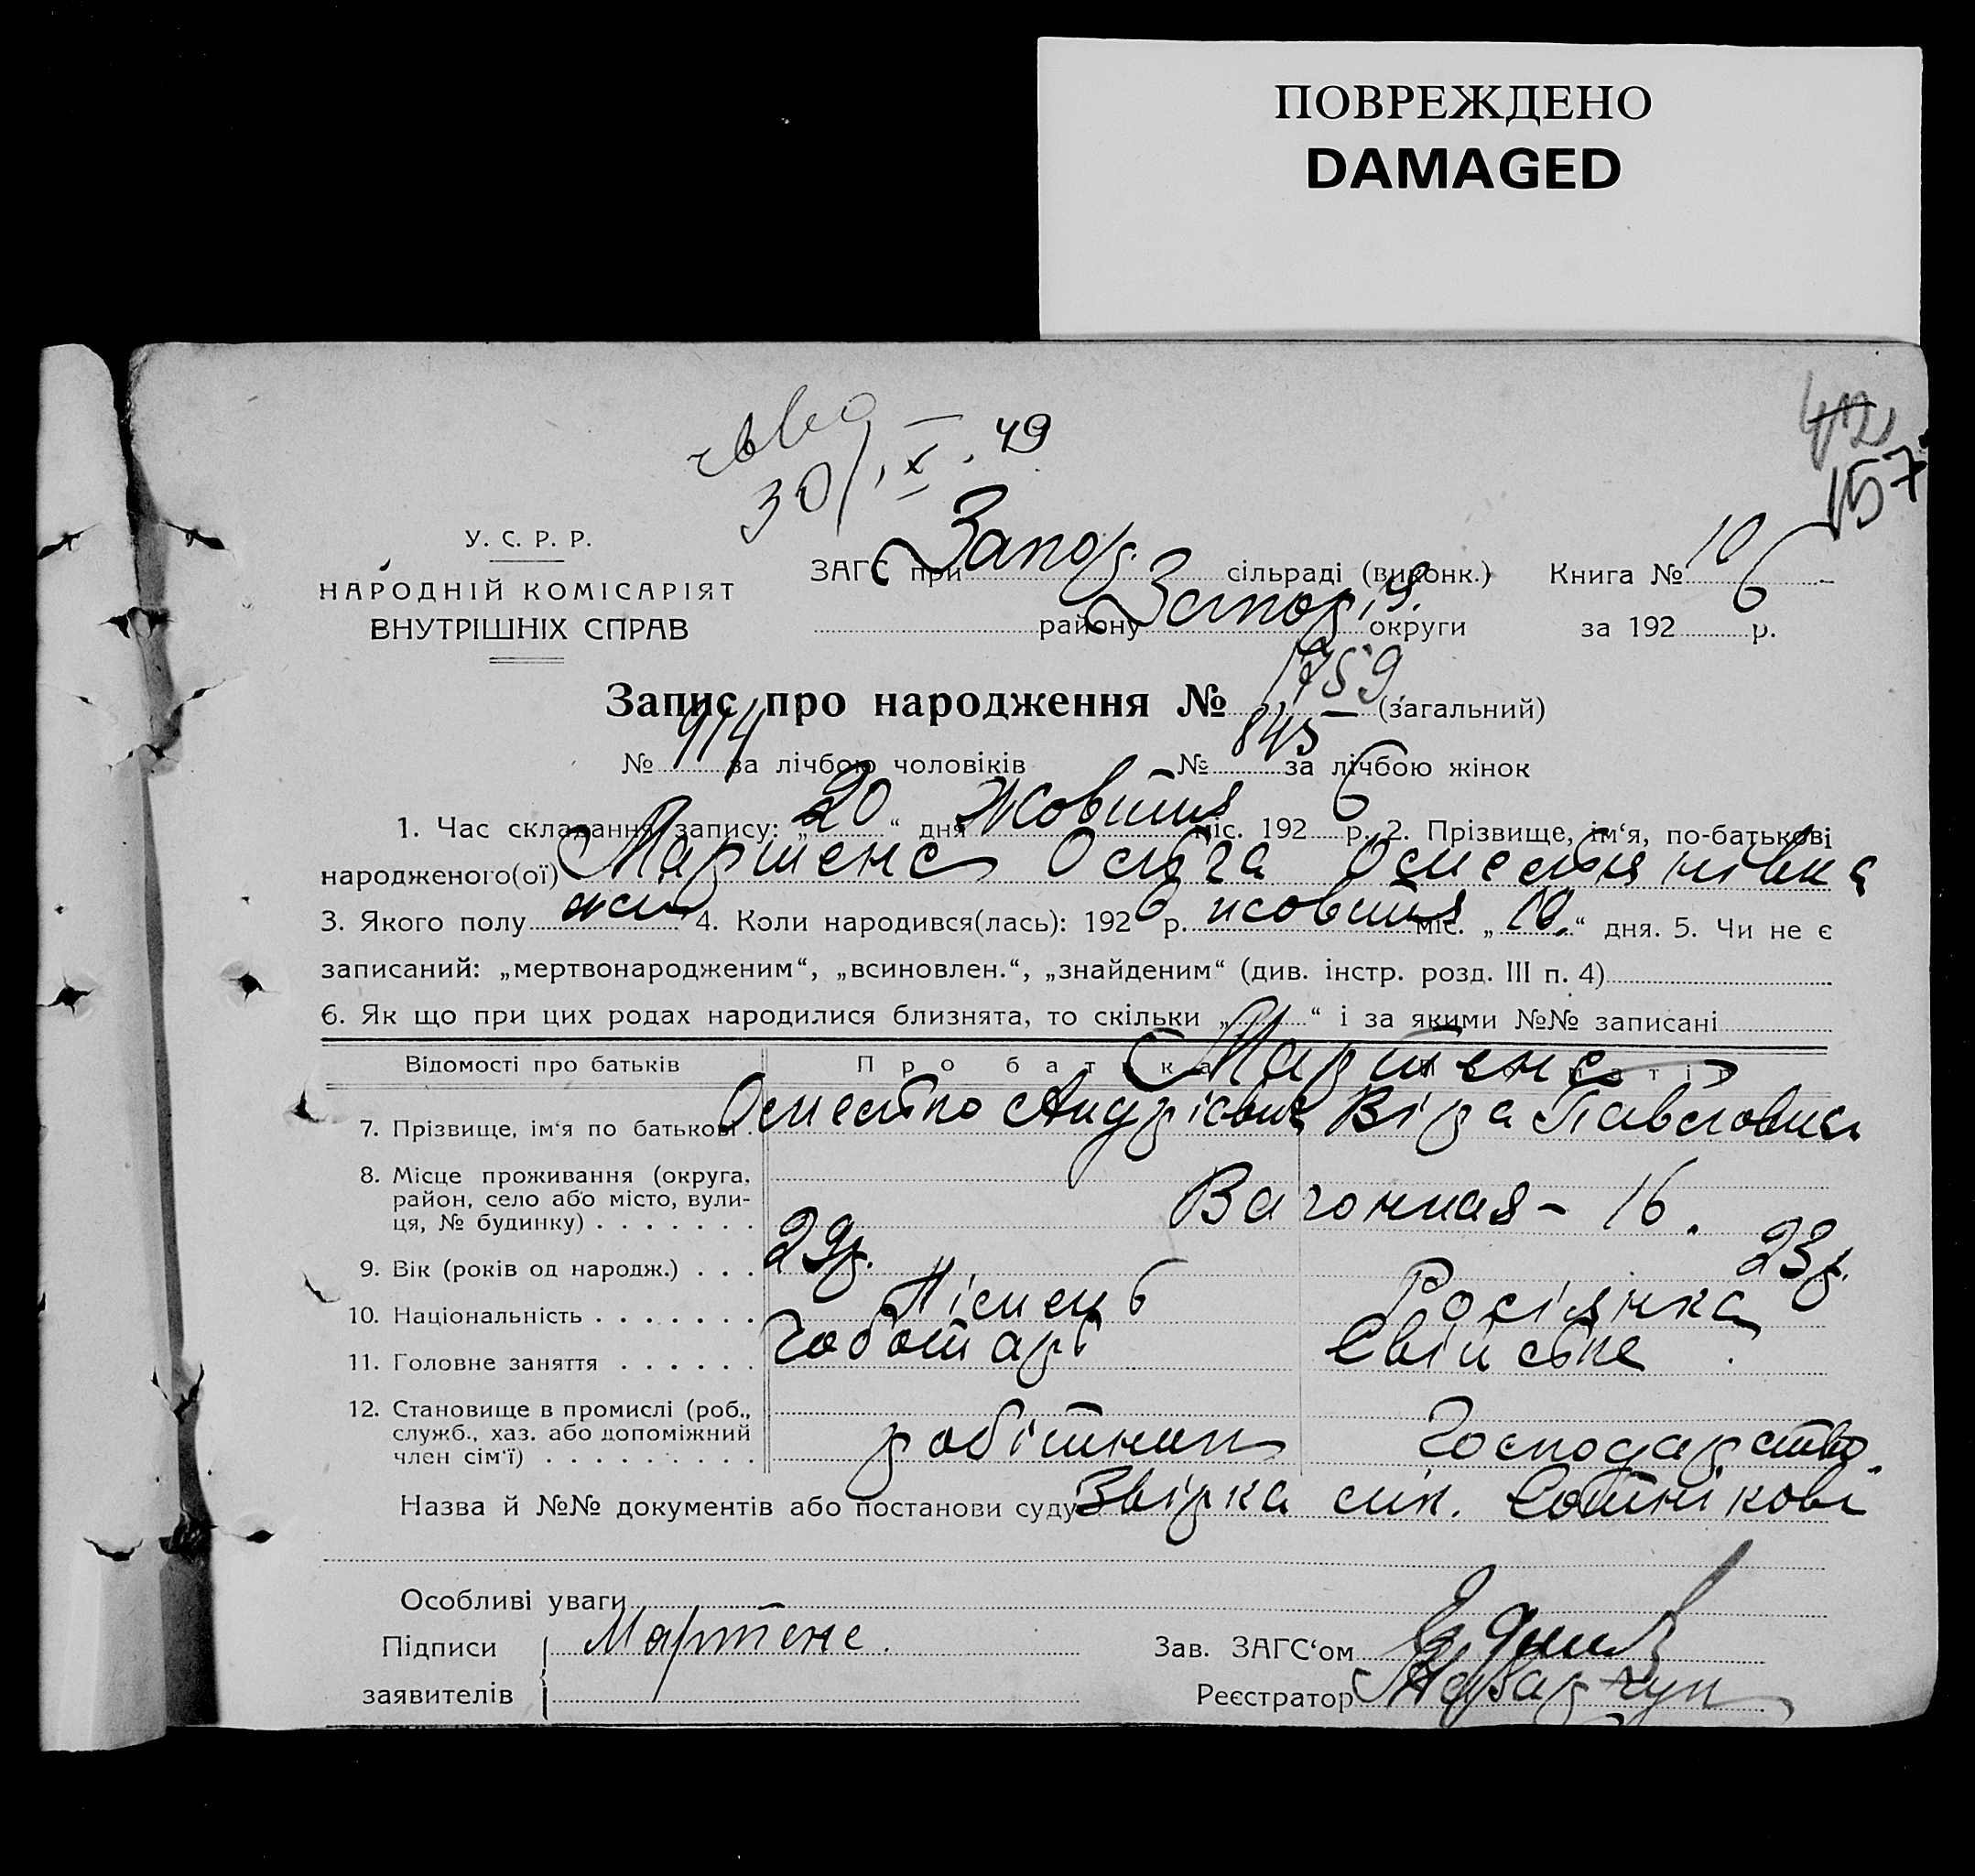 ПОВРЕЖДЕНО
DAMAGED
42
157
30/X.49
У. С. Р. Р.
НАРОДНІЙ КОМІСАРІЯТ
ВНУТРІШНІХ СПРАВ
ЗАГС при Запор. сільраді (виконк.) Книга № 10
району Запоріз. округи за 1926 р.
Запис про народження № 1759 (загальний)
№ 914 за лічбою чоловіків № 845 за лічбою жінок
1. Час складання запису: „20“ дня Жовтня міс. 1926 р. 2. Прізвище, ім‘я, по-батькові
народженого(ої) Мартенс Ольга
3. Якого полу жін 4. Коли народився(лась): 1926 р. жовтня міс. „10.“ дня. 5. Чи не є
записаний: „мертвонародженим“, „всиновлен.“, „знайденим“ (див. інстр. розд. III п. 4)
6. Як що при цих родах народилися близнята, то скільки „ “ і за якими №№ записані
Відомості про батьків Про батька Про матір
Мартенс
7. Прізвище, ім‘я по батькові Андрієвич Віра Павловна
8. Місце проживання (округа,
район, село або місто, вули-
ця, № будинку) Вагонная - 16.
9. Вік (років од народж.) 29р. 23р.
10. Національність Німець Росіянка
11. Головне заняття Чоботарь Свійське
12. Становище в промислі (роб.,
служб., хаз. або допоміжний
член сім‘ї) робітник Господарство.
Назва й №№ документів або постанови суду Звірка
Особливі уваги
Підписи Мартенс.
заявителів
Зав. ЗАГС‘ом
Реєстратор